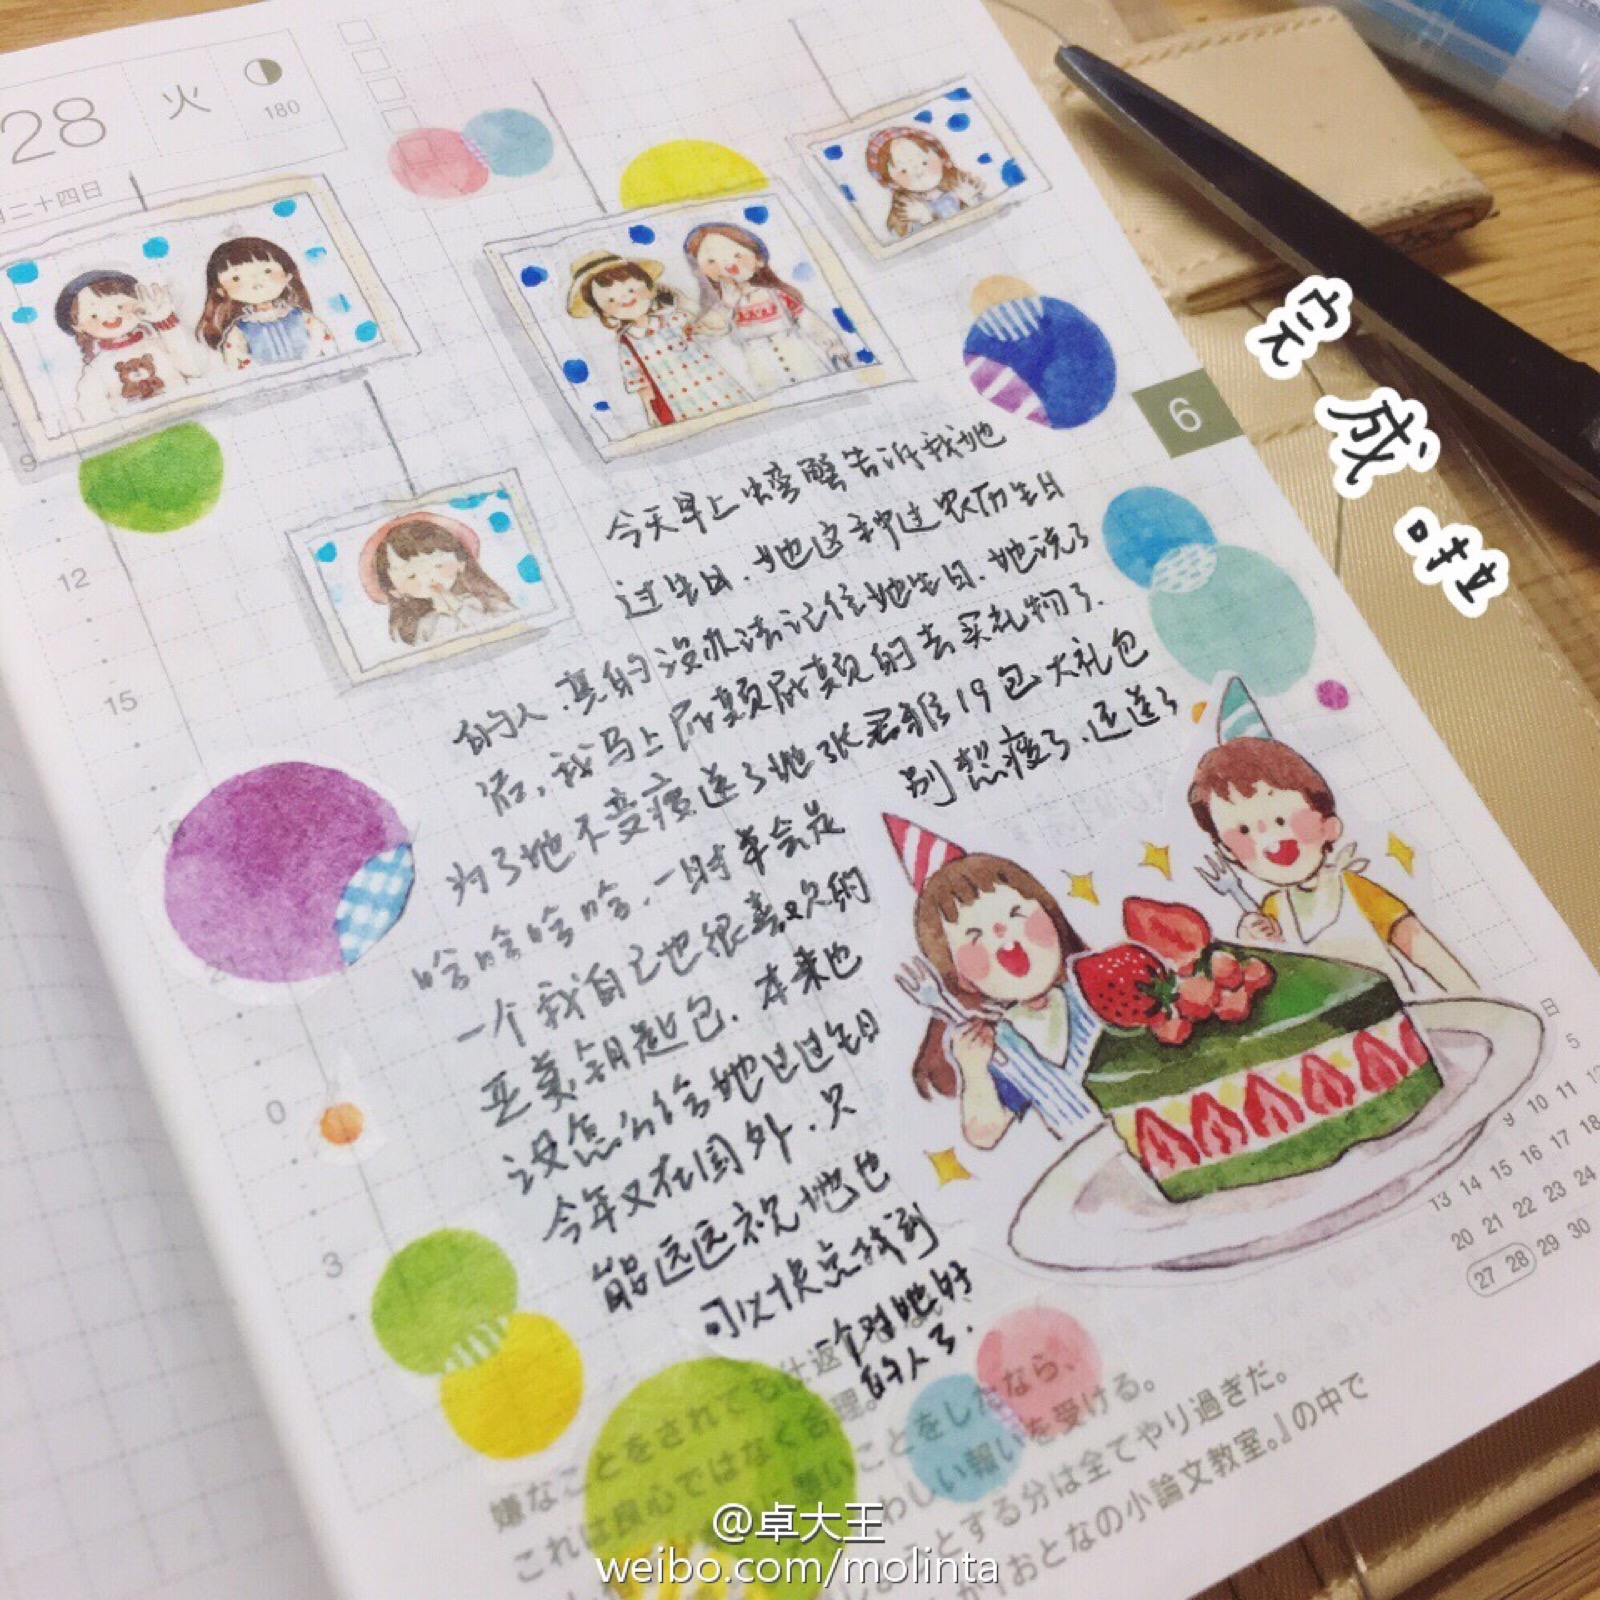 28 火
180
二十四日
6
完成啦
9
12
15
21
0
3
今天早上螃蟹告诉我她
过生日.她这种过农历生日
的人.真的没办法记住她生日.她说了
后,我马上屁颠屁颠的去买礼物了.
为了她不变瘦送了她张君雅19包大礼包
哈哈哈哈哈.一时 别想瘦了.还送了
一个我自己也很喜欢的
钥匙包.本来也
没怎么给她过过生日
今年又在国外.只
能远远祝她也
可以快点找到
个对她好
的人了.
日
5
9 10 11 12
13 14 15 16 17 18
20 21 22 23 24
27 28 29 30
嫌なことをされても仕返
これは良心ではなく合理。
ことをしたなら、
わしい報いを受ける。
とする分は全てやり過ぎだ。
おとなの小論文教室。』の中で
@卓大王
weibo.com/molinta